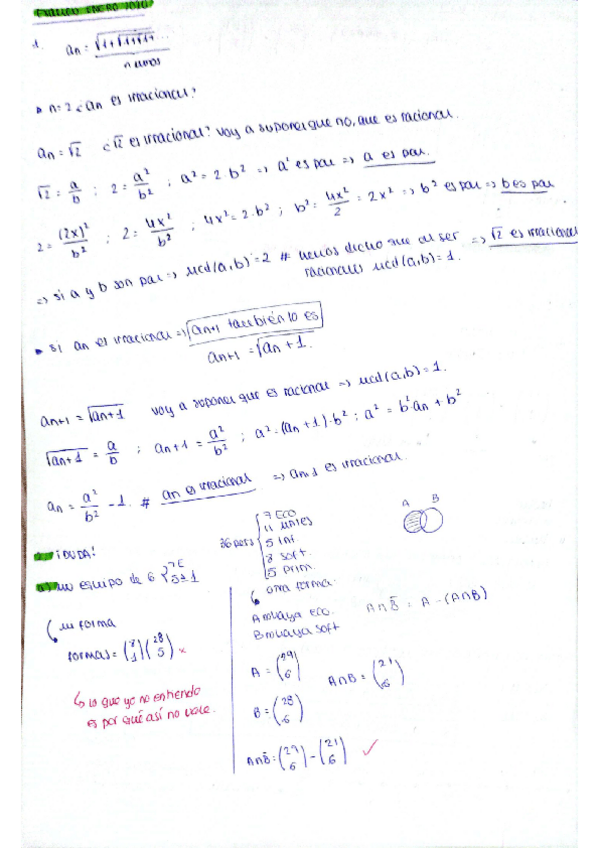 EXAMEN ENERO 2020
1. an = √1+√1+√1+...
n unos
• n=2 ¿an es irracional?
an = √2 ¿√2 es irracional? Voy a suponer que no, que es racional.
√2 = a/b ; 2 = a²/b² ; a² = 2·b² => a² es par => a es par.
2 = (2x)²/b² ; 2 = 4x²/b² ; 4x² = 2·b² ; b² = 4x²/2 = 2x² => b² es par => b es par
=> si a y b son par => mcd(a,b) = 2 # hemos dicho que al ser => √2 es irracional
racionales mcd(a,b) = 1.
• si an es irracional => an+1 también lo es
an+1 = √an + 1.
an+1 = √an+1 voy a suponer que es racional => mcd(a,b) = 1.
√an+1 = a/b ; an+1 = a²/b² ; a² = (an+1)·b² ; a² = b²an + b²
an = a²/b² - 1. # an es irracional => an+1 es irracional.
A B
2. ¡DUDA!
36 pers { 7 Eco
11
5 Inf
8 soft.
5 prim.
a) un equipo de 6 { ≥ 1
mi forma
formas = (7 1)(28 5) ×
lo que yo no entiendo
es por qué así no vale.
otra forma:
A no haya Eco. A∩B̄ = A - (A∩B)
B no haya soft
A = (29 6) A∩B = (21 6)
B = (28 6)
A∩B̄ = (29 6) - (21 6) ✓